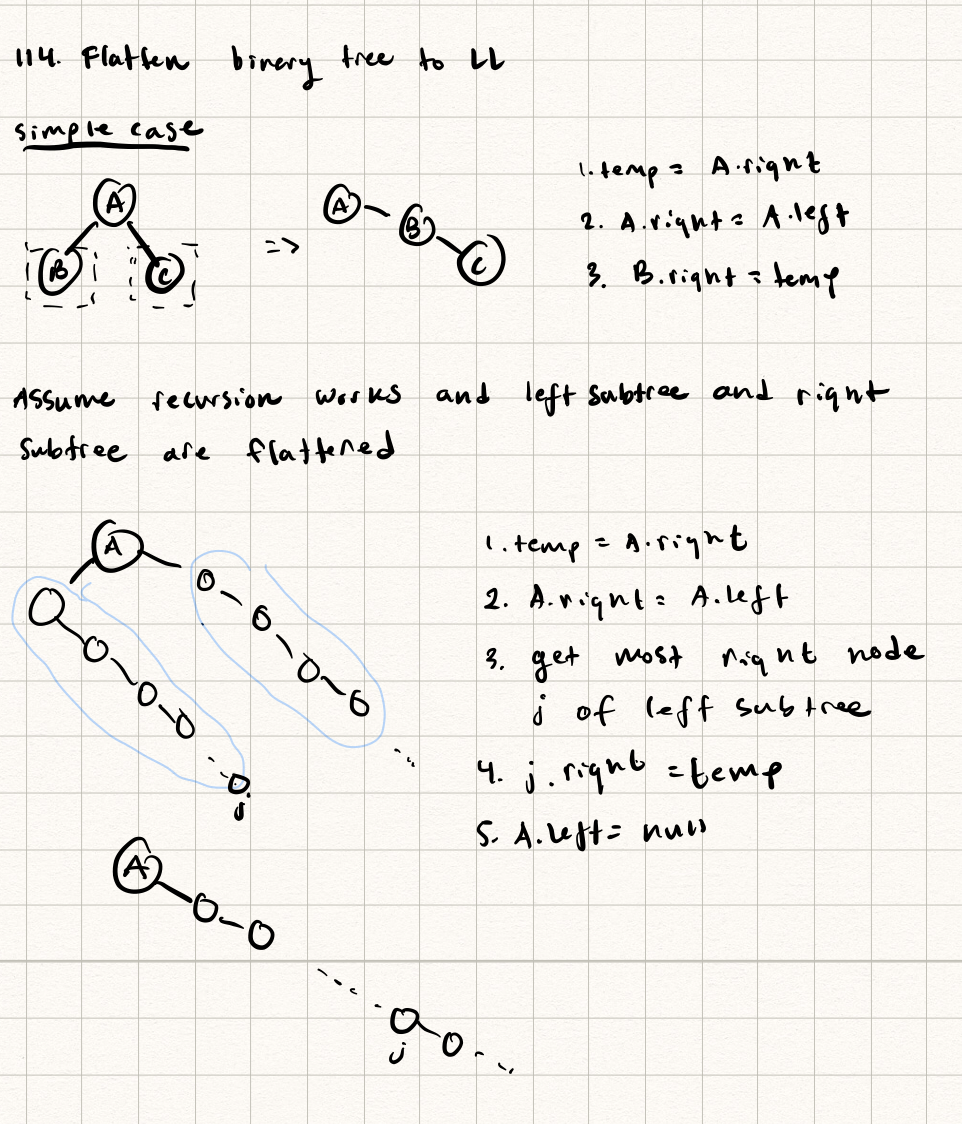 114. Flatten binary tree to LL
simple case
A
B
C
=>
A
B
C
1. temp = A.right
2. A.right = A.left
3. B.right = temp
Assume recursion works and left subtree and right
subtree are flattened
A
j
1. temp = A.right
2. A.right = A.left
3. get most right node
j of left subtree
4. j.right = temp
5. A.left = null
A
j